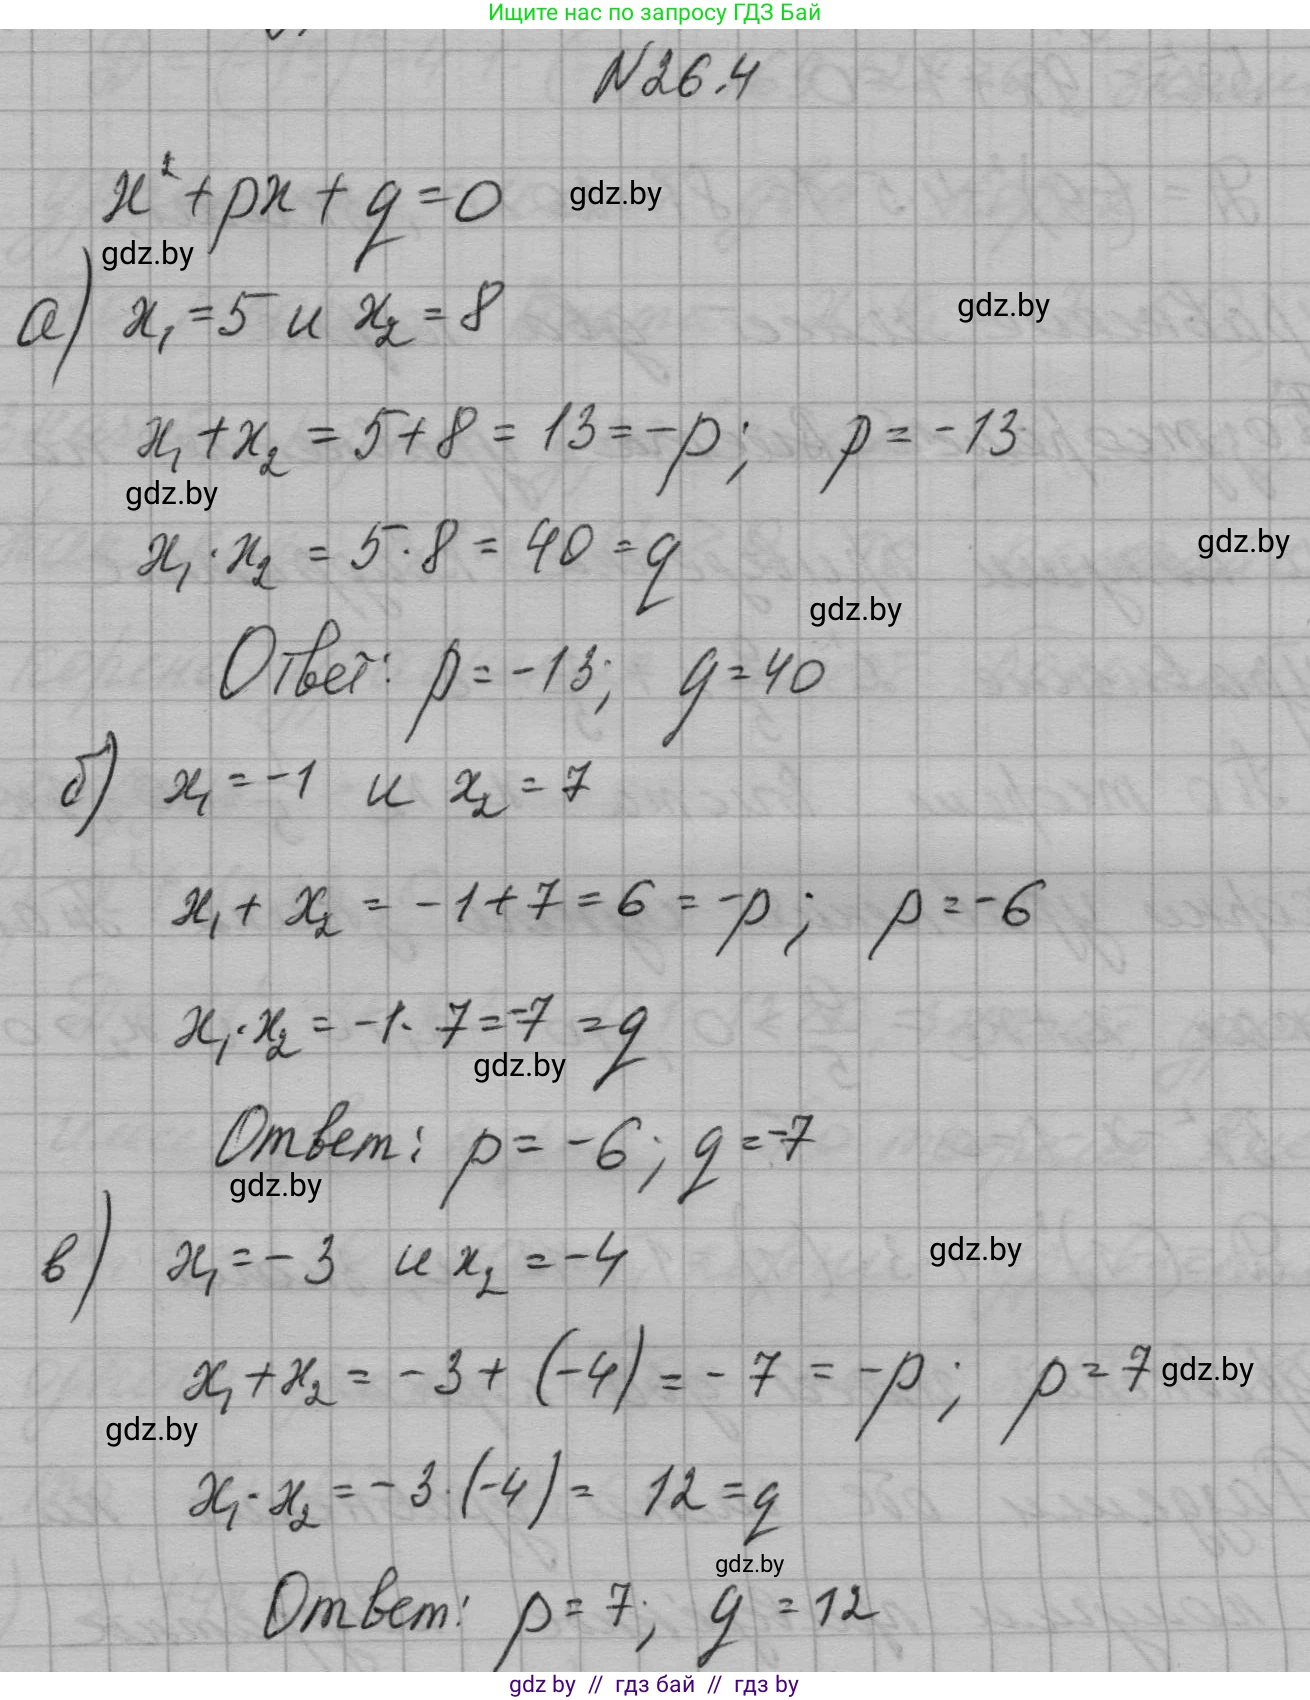 Ищите нас по запросу ГДЗ Бай
N26.4
x² + px + q = 0
gdz.by
gdz.by
а) x₁ = 5 и x₂ = 8
gdz.by
x₁ + x₂ = 5 + 8 = 13 = -p; p = -13
gdz.by
x₁ · x₂ = 5 · 8 = 40 = q
gdz.by
gdz.by
Ответ: p = -13; q = 40
б) x₁ = -1 и x₂ = 7
x₁ + x₂ = -1 + 7 = 6 = -p; p = -6
x₁ · x₂ = -1 · 7 = -7 = q
gdz.by
Ответ: p = -6; q = -7
gdz.by
в) x₁ = -3 и x₂ = -4
gdz.by
x₁ + x₂ = -3 + (-4) = -7 = -p; p = 7
gdz.by
gdz.by
x₁ · x₂ = -3 · (-4) = 12 = q
gdz.by
Ответ: p = 7; q = 12
gdz.by // гдз бай // гдз by